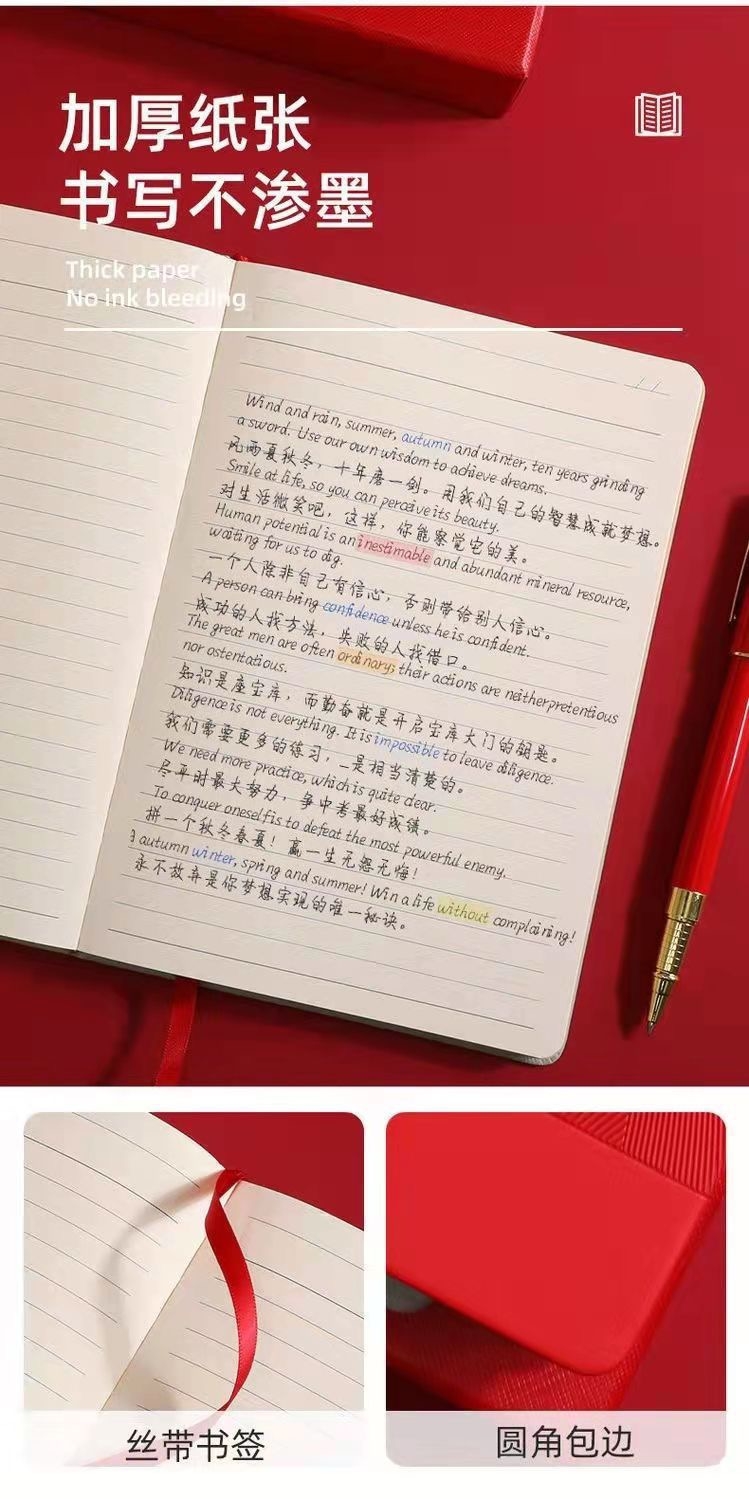 加厚纸张
书写不渗墨
Thick paper
No ink bleeding
Wind and rain, summer, autumn and winter, ten years grinding
a sword. Use our own wisdom to achieve dreams.
风雨夏秋冬，十年磨一剑。用我们自己的智慧成就梦想。
Smile at life, so you can perceive its beauty.
对生活微笑吧，这样，你能察觉它的美。
Human potential is an inestimable and abundant mineral resource,
waiting for us to dig.
一个人除非自己有信心，否则带给别人信心。
A person can bring confidence unless he is confident.
成功的人找方法，失败的人找借口。
The great men are often ordinary; their actions are neither pretentious
nor ostentatious.
知识是座宝库，而勤奋就是开启宝库大门的钥匙。
Diligence is not everything. It is impossible to leave diligence.
我们需要更多的练习，一是相当清楚的。
We need more practice, which is quite clear.
尽平时最大努力，争中考最好成绩。
To conquer oneself is to defeat the most powerful enemy.
拼一个秋冬春夏！赢一生无怨无悔！
a autumn winter, spring and summer! Win a life without complaining!
永不放弃是你梦想实现的唯一秘诀。
丝带书签
圆角包边